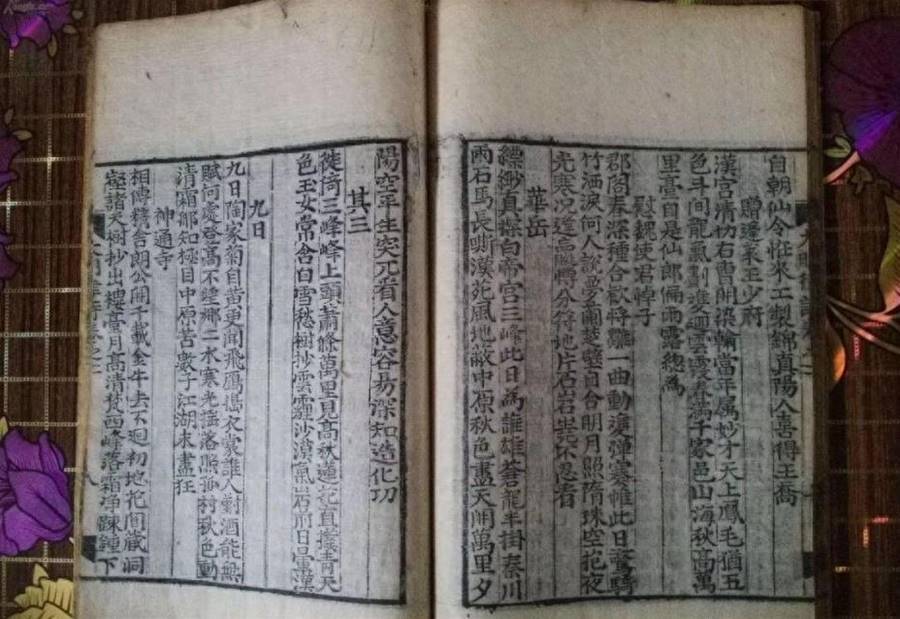 自朝仙令惟來工製錦真陽人善得王喬
贈蓬萊王少府
漢宮清切右曹開染翰當年属妙才天上鳳毛猶五
色斗間龍氣劃雙迴雲霞春滿千家邑山海秋高萬
里臺自是仙郎偏雨露總為
慰魏使君悼子
郡閣春深種合歡將雛一曲動滄彈寒帷此日驚騎
竹洒淚何人說夢蘭楚璧自合明月照隋珠空花夜
光寒况逢高勝分符地片石岩岩不忍看
華岳
縹緲真探白帝宮三峰此日為誰雄蒼龍半掛秦川
雨石馬長嘶漢苑風地蔽中原秋色盡天開萬里夕
陽空平生突兀看人意容易深知造化功
其三
徙倚三峰峰上頭蕭條萬里見高秋蓮花直擁青天
色玉女常含白雪愁樹杪雲霾沙漠氣岩前日暈漢
九日
九日陶家菊自黃更聞飛鴈擣衣裳誰人對酒能無
賦何處登高不望鄉二水寒光搖落照孤村秋色動
清霜那知極目中原苦數子江湖末盡狂
神通寺
相傳精舍朗公開千載金牛去不廻初地花間藏洞
壑諸天樹杪出樓臺月高清梵西峰落霜淨踈鍾下